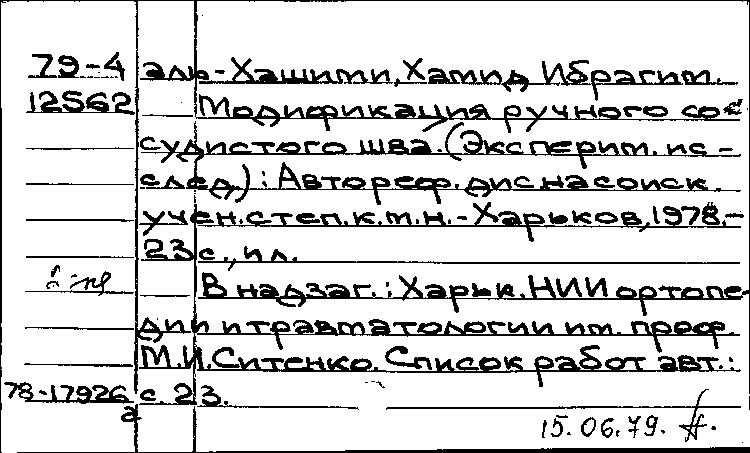 79-4 аль-Хашими, Хамид Ибрагим.
12562 Модификация ручного сосу-
судистого шва. (Эксперим. ис-
след.): Автореф. дис на соиск.
учен. степ. к. т. н. - Харьков, 1978. -
23 с., ил.
В надзаг.: Харьк. НИИ ортопе-
дии и травматологии им. проф.
М. И. Ситенко. Список работ авт.:
78-17926 с. 23.
а
15.06.79.